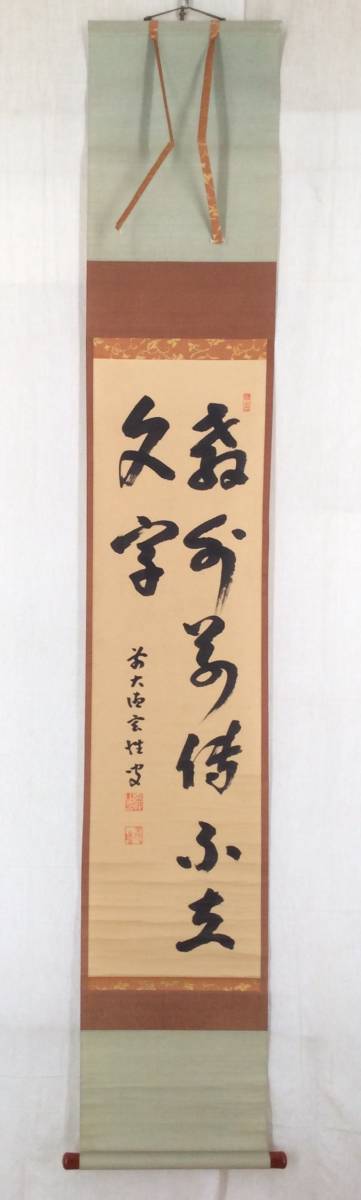 教外別傳不立
文字
前大徳玄性叟